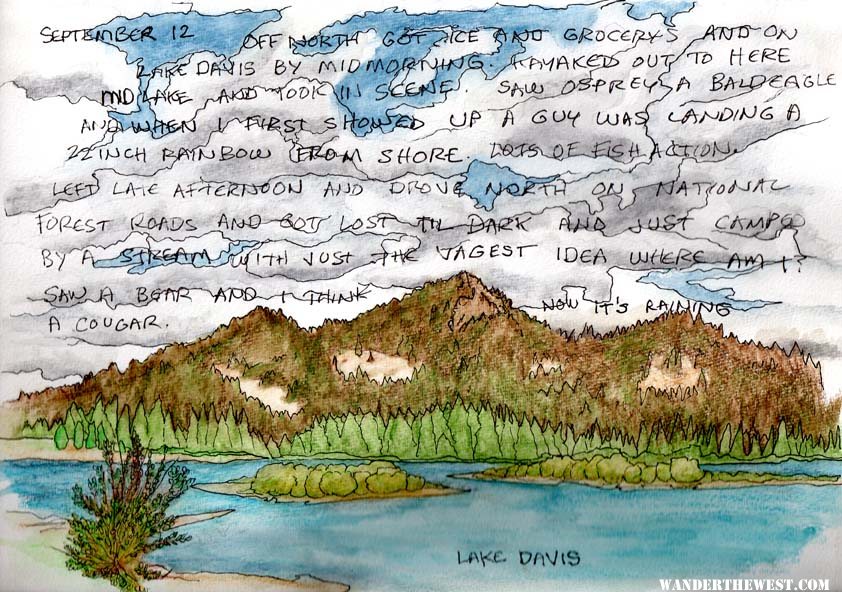 SEPTEMBER 12 OFF NORTH GOT ICE AND GROCERYS AND ON
LAKE DAVIS BY MIDMORNING. KAYAKED OUT TO HERE
MID LAKE AND TOOK IN SCENE. SAW OSPREY, A BALDEAGLE
AND WHEN I FIRST SHOWED UP A GUY WAS LANDING A
22 INCH RAINBOW FROM SHORE. LOTS OF FISH ACTION.
LEFT LATE AFTERNOON AND DROVE NORTH ON NATIONAL
FOREST ROADS AND GOT LOST TIL DARK AND JUST CAMPED
BY A STREAM WITH JUST THE VAGEST IDEA WHERE AM I?
SAW A BEAR AND I THINK
A COUGAR. NOW IT'S RAINING
LAKE DAVIS
WANDERTHEWEST.COM